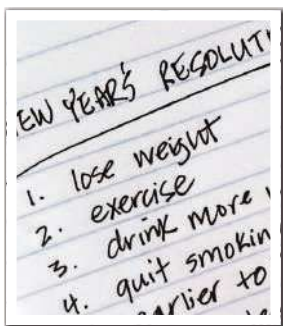 EW YEAR'S RESOLUTI
1. lose weight
2. exercise
3. drink more
4. quit smokin
arlier to